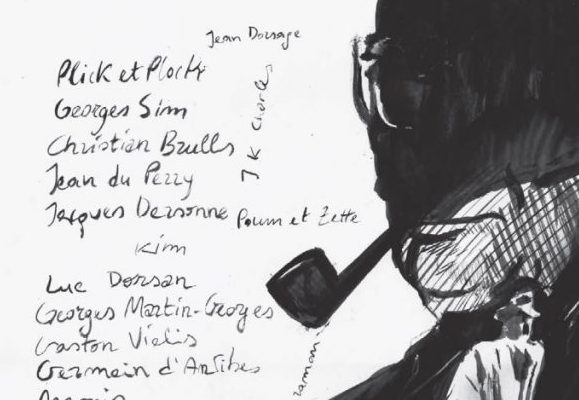 Jean Dorsage
Plick et Plock
Georges Sim
Christian Brulls
J K Charles
Jean du Perry
Jacques Dersonne
Poum et Zette
Kim
Luc Dorsan
Georges Martin-Georges
Gaston Vialis
Germain d'Antibes